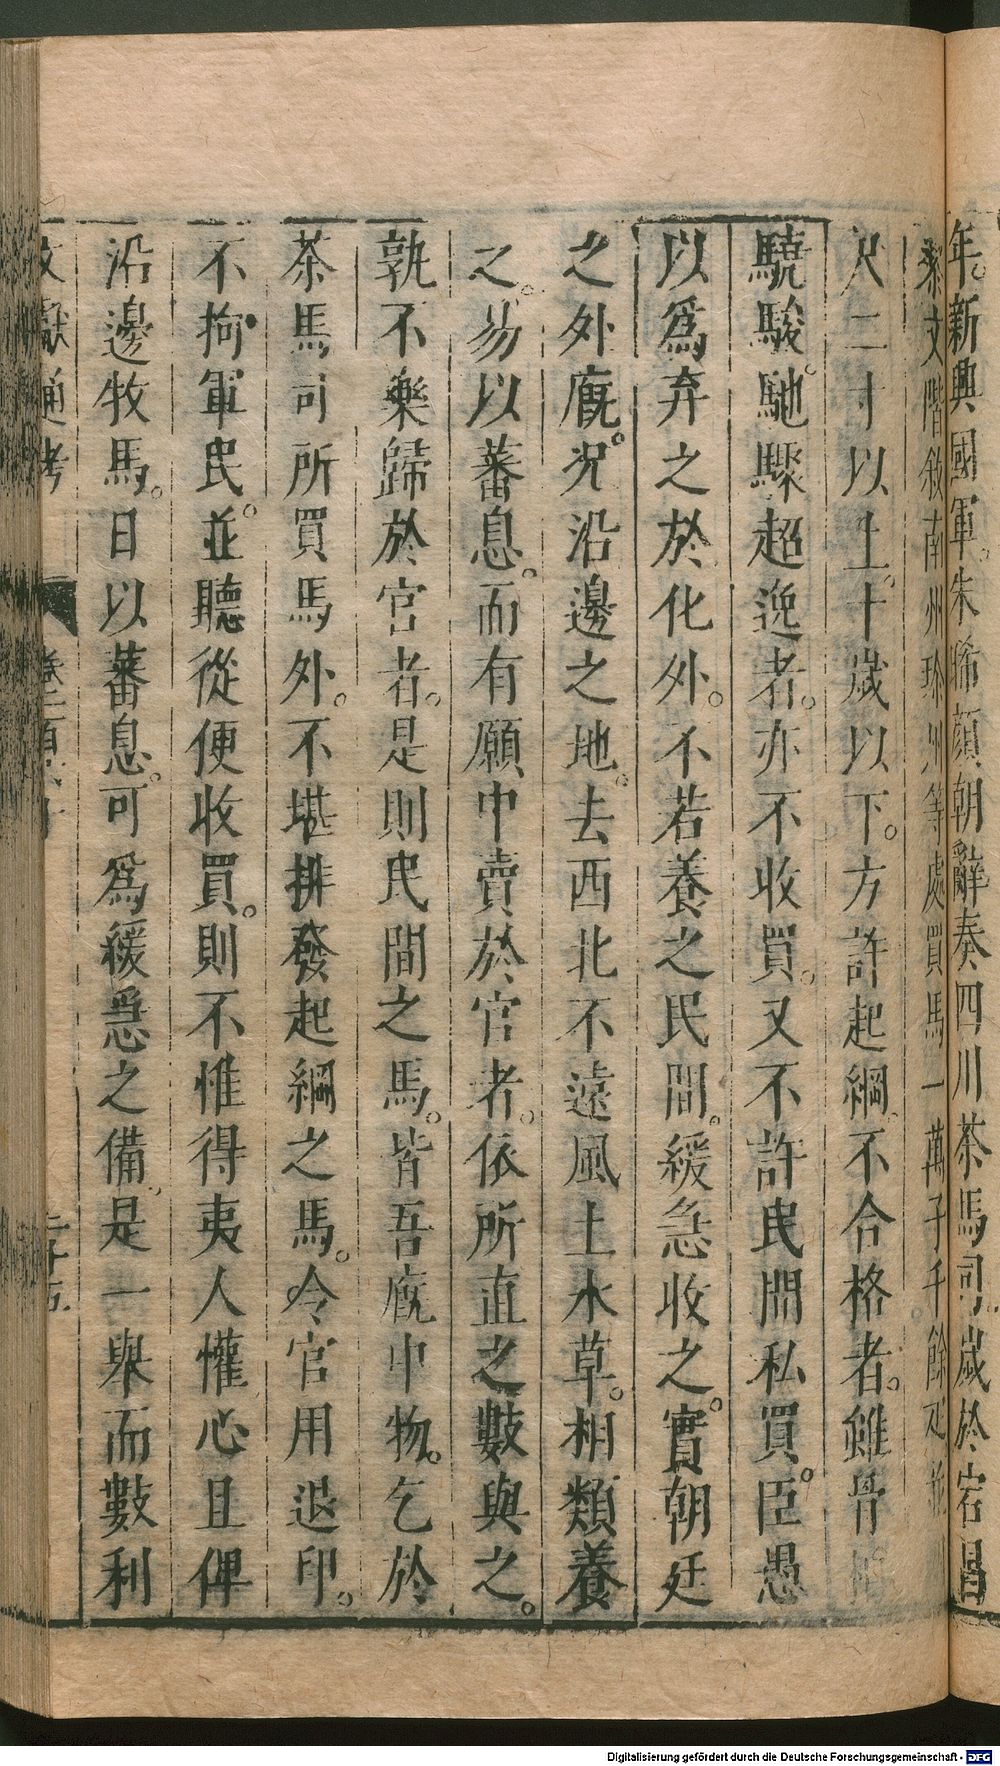 年。新興國軍。朱晞顏朝辭奏四川茶馬司。歲於宕昌
黎文階敘南州珍州等處買馬一萬子千餘疋並
尺二寸以上。十歲以下。方許起綱。不合格者。雖骨相
驍駿。馳驟超逸者。亦不收買。又不許民間私買。臣愚
以爲弃之於化外。不若養之民間。緩急收之。實朝廷
之外廐。况沿邊之地。去西北不遠風土水草。相類養
之。易以蕃息。而有願中賣於官者。依所直之數與之。
孰不樂歸於官者。是則民間之馬。皆吾廐中物。乞於
茶馬司所買馬外。不堪排發起綱之馬。令官用退印。
不拘軍民。並聽從便收買。則不惟得夷人懽心且俾
沿邊牧馬。日以蕃息。可爲緩急之備。是一舉而數利
文獻通考 卷一百六十 二十五
Digitalisierung gefördert durch die Deutsche Forschungsgemeinschaft - DFG